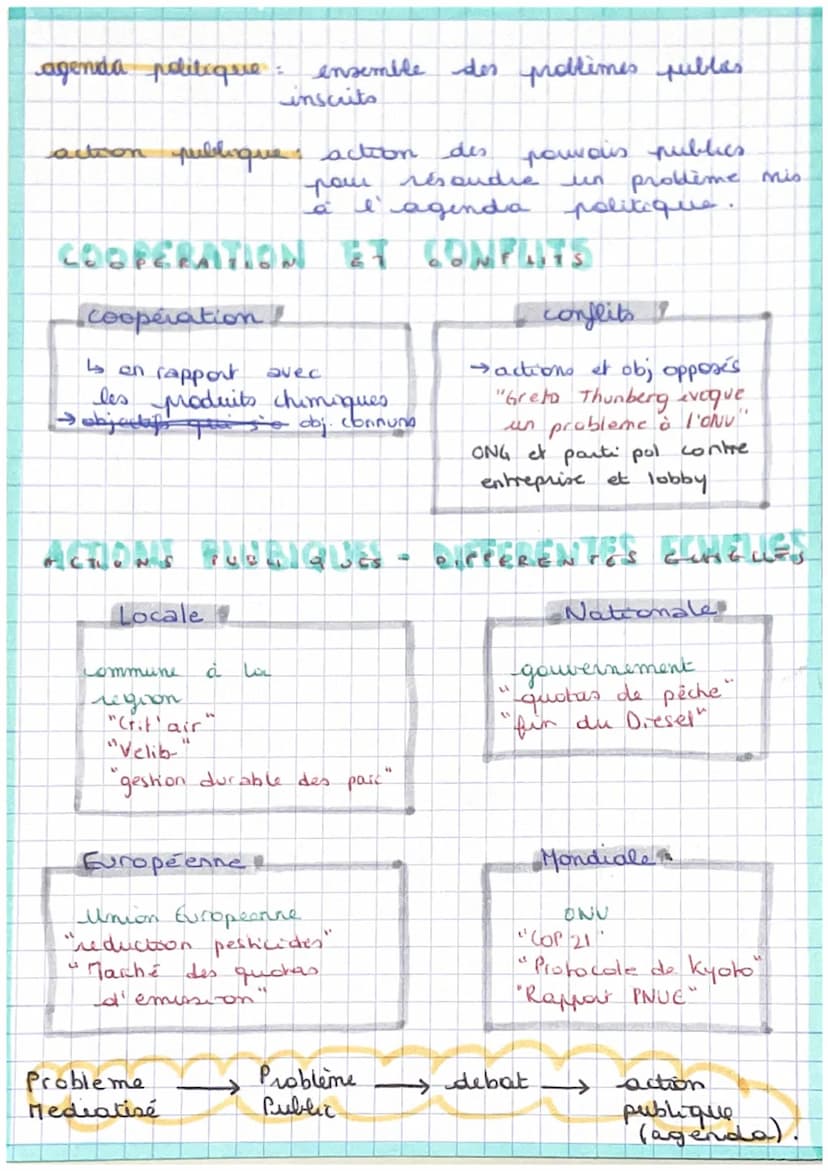 agenda politique : ensemble des problèmes publics
inscrits
action publique : action des pouvoirs publics
pour résoudre un problème mis
à l'agenda politique.
COOPERATION ET CONFLITS
coopération
↳ en rapport avec
les produits chimiques
→ objectifs qui s obj. communs
conflits
→ actions et obj opposés
"Greta Thunberg evoque
un probleme à l'ONU"
ONG et parti pol contre
entreprise et lobby
ACTIONS PUBLIQUES - DIFFERENTES ECHELLES
Locale
commune à la
region
"Crit'air"
"Velib"
"gestion durable des parc"
Nationale
gouvernement
"quotas de pêche"
"fin du Diesel"
Européenne
Union Européenne
"reduction pesticides"
"Marché des quotas
d'emission"
Mondiale
ONU
"COP 21"
"Protocole de Kyoto"
"Rapport PNUE"
Probleme → Problème → debat → action
Mediatisé Public publique
(agenda).